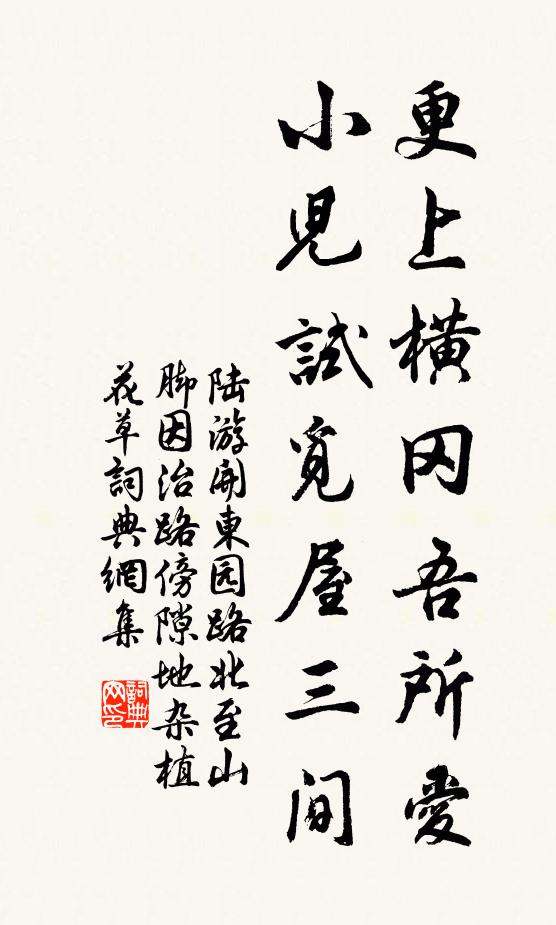 更上横冈吾所愛
小児試覓屋三间
陆游開東园路北至山
脚因治路傍隙地杂植
花草詞典網集
詞典
网印